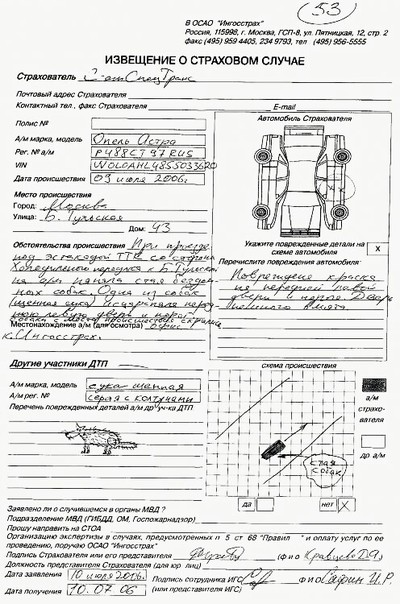 53
В ОСАО "Ингосстрах"
Россия, 115998, г. Москва, ГСП-8, ул. Пятницкая, 12, стр. 2
факс (495) 959 4405, 234 9793, тел (495) 956-5555
ИЗВЕЩЕНИЕ О СТРАХОВОМ СЛУЧАЕ
Страхователь
Почтовый адрес Страхователя
Контактный тел., факс Страхователя E-mail
Полис №
Автомобиль Страхователя
А/м марка, модель Опель Астра
Рег. № а/м Р488СТ 97 RUS
VIN
Дата происшествия 03 июля 2006г.
Место происшествия
Город: Москва
Улица: Б. Тульская
Дом: 43
Укажите поврежденные детали на схеме автомобиля X
Обстоятельства происшествия При проезде
под эстакадой ТТК со стороны
переулка к Б. Тульской
на а/м напала стая бездом-
ных собак. Одна из собак
(щенная сука) поцарапала перед-
нюю левую дверь и порог.
Собака с места происшествия скрылась
Перечислите повреждения автомобиля
Повреждена краска
на передней левой
двери и пороге. Дверь
немного вмята
Местонахождение а/м (для осмотра) офис
к. Ингосстрах.
Другие участники ДТП
схема происшествия
А/м марка, модель сука щенная
А/м рег. № серая с колтунами
Перечень поврежденных деталей а/м др уч-ка ДТП
а/м
страхо-
вателя
др а/м
стая
собак
да нет X
Заявлено ли о случившемся в органы МВД ?
Подразделение МВД (ГИБДД, ОМ, Госпожарнадзор)
Прошу направить на СТОА
Организацию экспертизы в случаях, предусмотренных п 5 ст 68 "Правил " и оплату услуг по ее
проведению, поручаю ОСАО "Ингосстрах"
Подпись Страхователя или его представителя (ф и о)
Должность представителя Страхователя (для юр лиц)
Дата заявления 10 июля 2006г. Подпись сотрудника ИГС ф и о
Дата получения 10.07.06 (или представителя ИГС)